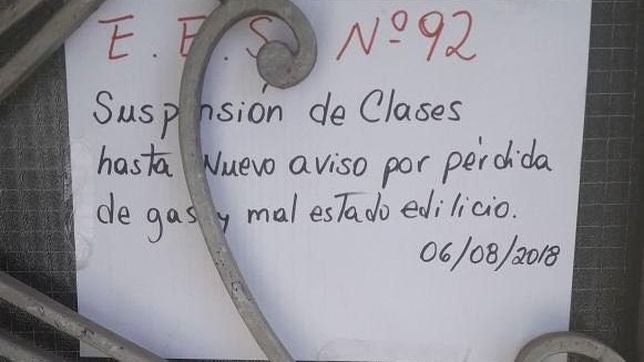 E.E.S Nº92
Suspensión de Clases
hasta Nuevo aviso por pérdida
de gas y mal estado edilicio.
06/08/2018